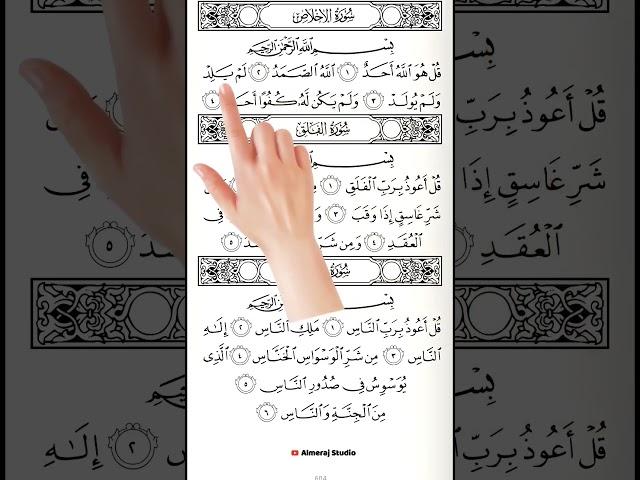 سُورَةُ الإِخْلَاصِ
بِسْمِ اللَّهِ الرَّحْمَٰنِ الرَّحِيمِ
قُلْ هُوَ اللَّهُ أَحَدٌ ١ اللَّهُ الصَّمَدُ ٢ لَمْ يَلِدْ
وَلَمْ يُولَدْ ٣ وَلَمْ يَكُن لَّهُ كُفُوًا ٤
سُورَةُ الفَلَقِ
بِسْمِ
قُلْ أَعُوذُ بِرَبِّ الْفَلَقِ ١
شَرِّ غَاسِقٍ إِذَا وَقَبَ ٣ فِي
الْعُقَدِ ٤ وَمِن شَرِّ ٥
سُورَةُ
بِسْمِ الرَّحِيمِ
قُلْ أَعُوذُ بِرَبِّ النَّاسِ ١ مَلِكِ النَّاسِ ٢ إِلَٰهِ
النَّاسِ ٣ مِن شَرِّ الْوَسْوَاسِ الْخَنَّاسِ ٤ الَّذِي
يُوَسْوِسُ فِي صُدُورِ النَّاسِ ٥
مِنَ الْجِنَّةِ وَالنَّاسِ ٦
Almeraj Studio
604